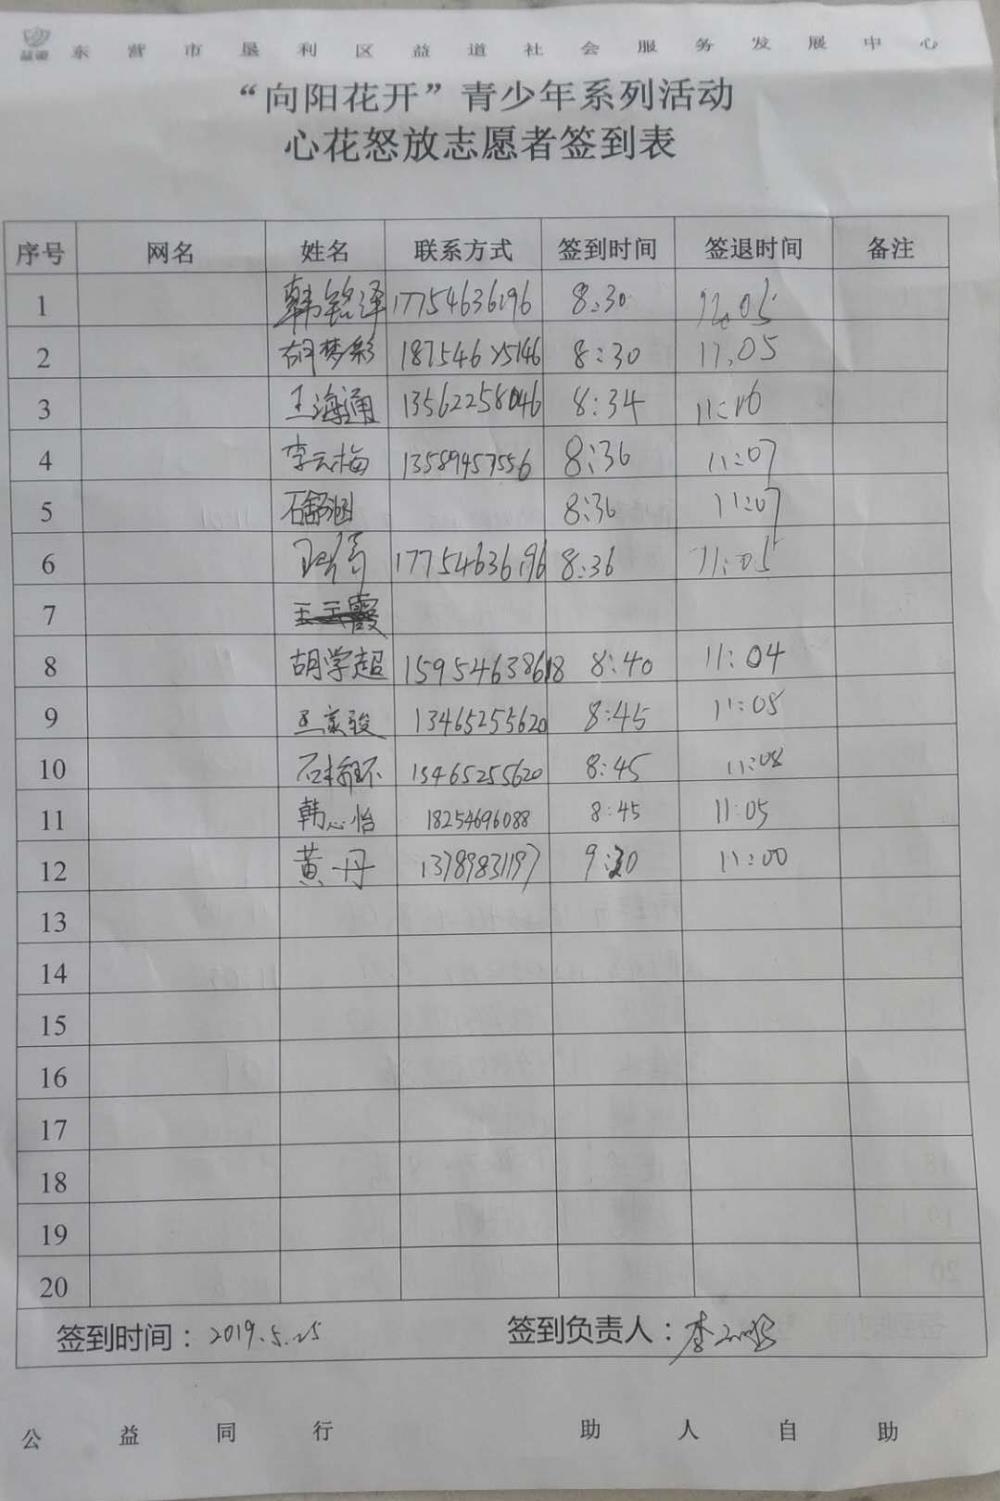 益道 东营市垦利区益道社会服务发展中心
“向阳花开”青少年系列活动
心花怒放志愿者签到表
序号 网名 姓名 联系方式 签到时间 签退时间 备注
1 韩铭泽 17754636196 8:30
2 胡梦彩 8:30 11.05
3 王海通 13562258046 8:34
4 李云梅 13589457556 8:36 11:07
5 石舒涵 8:36 11:07
6 17754636196 8:36 11:05
7 王云霞
8 胡学超 15954638618 8:40 11:04
9 13465255620 8:45 11:05
10 13465255620 8:45 11:08
11 韩心怡 18254696088 8:45 11:05
12 黄丹 13789831197 9:30 11:00
13
14
15
16
17
18
19
20
签到时间：2019.5.25 签到负责人：李
公益同行 助人自助